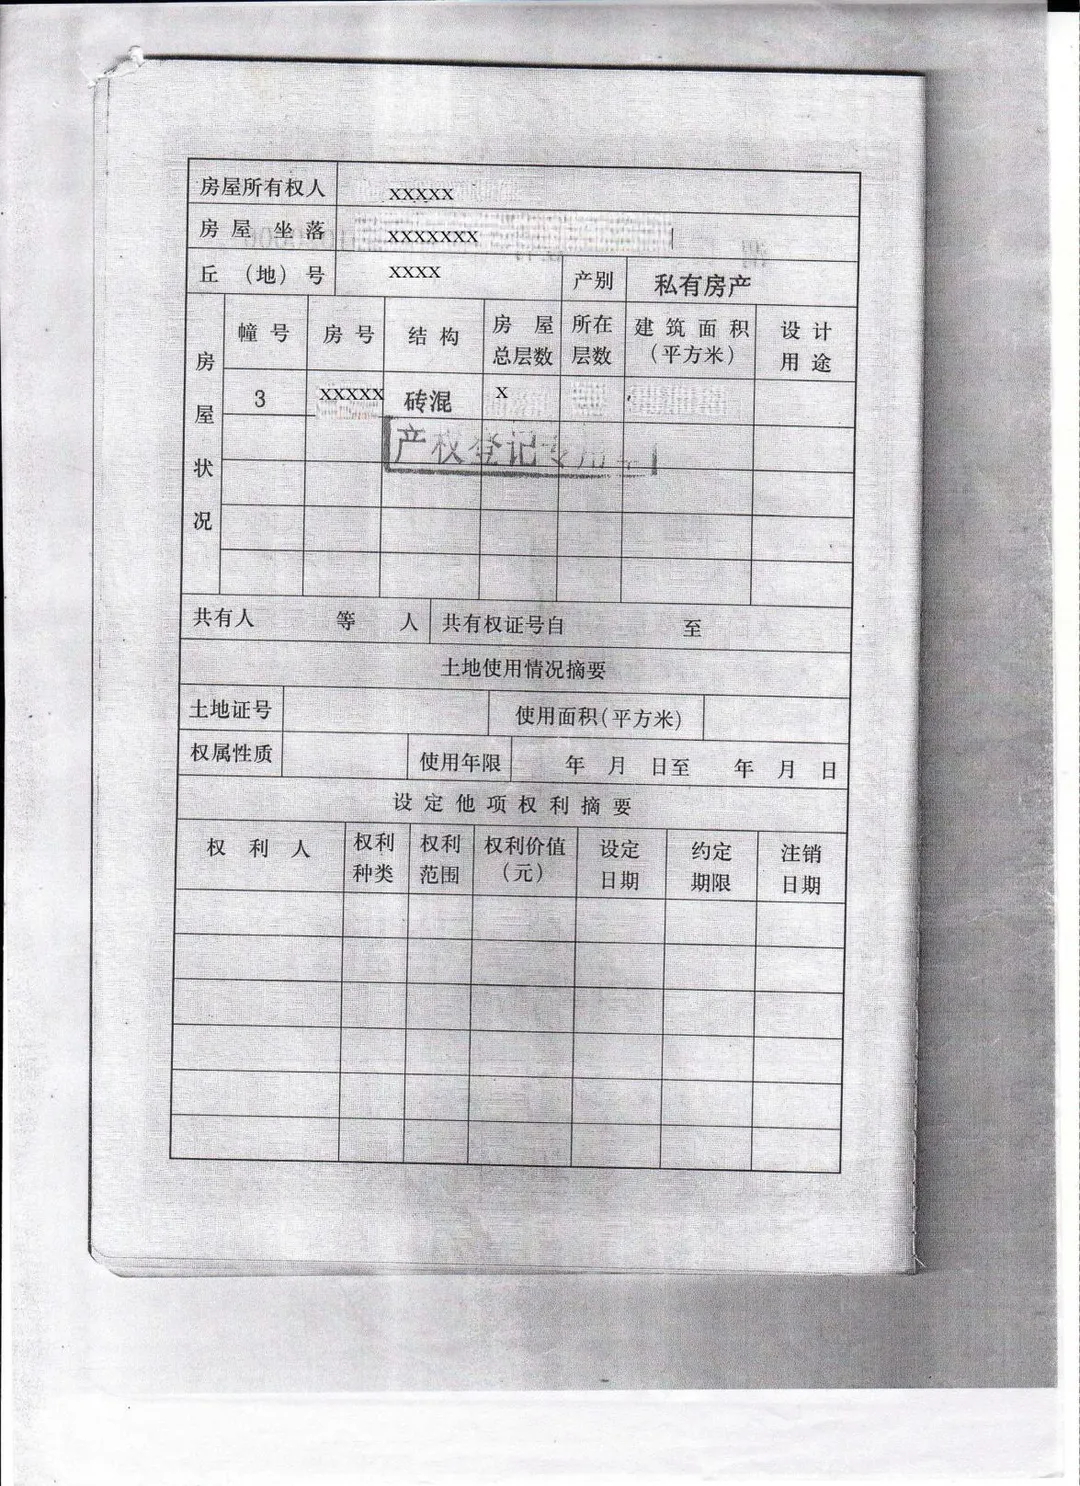 房屋所有权人 xxxxx
房屋坐落 xxxxxxx
丘（地）号 xxxx 产别 私有房产
房屋状况 幢号 房号 结构 房屋总层数 所在层数 建筑面积（平方米） 设计用途
3 xxxxx 砖混 x
产权登记专用
共有人 等 人 共有权证号自 至
土地使用情况摘要
土地证号 使用面积(平方米)
权属性质 使用年限 年 月 日至 年 月 日
设定他项权利摘要
权利人 权利种类 权利范围 权利价值（元） 设定日期 约定期限 注销日期